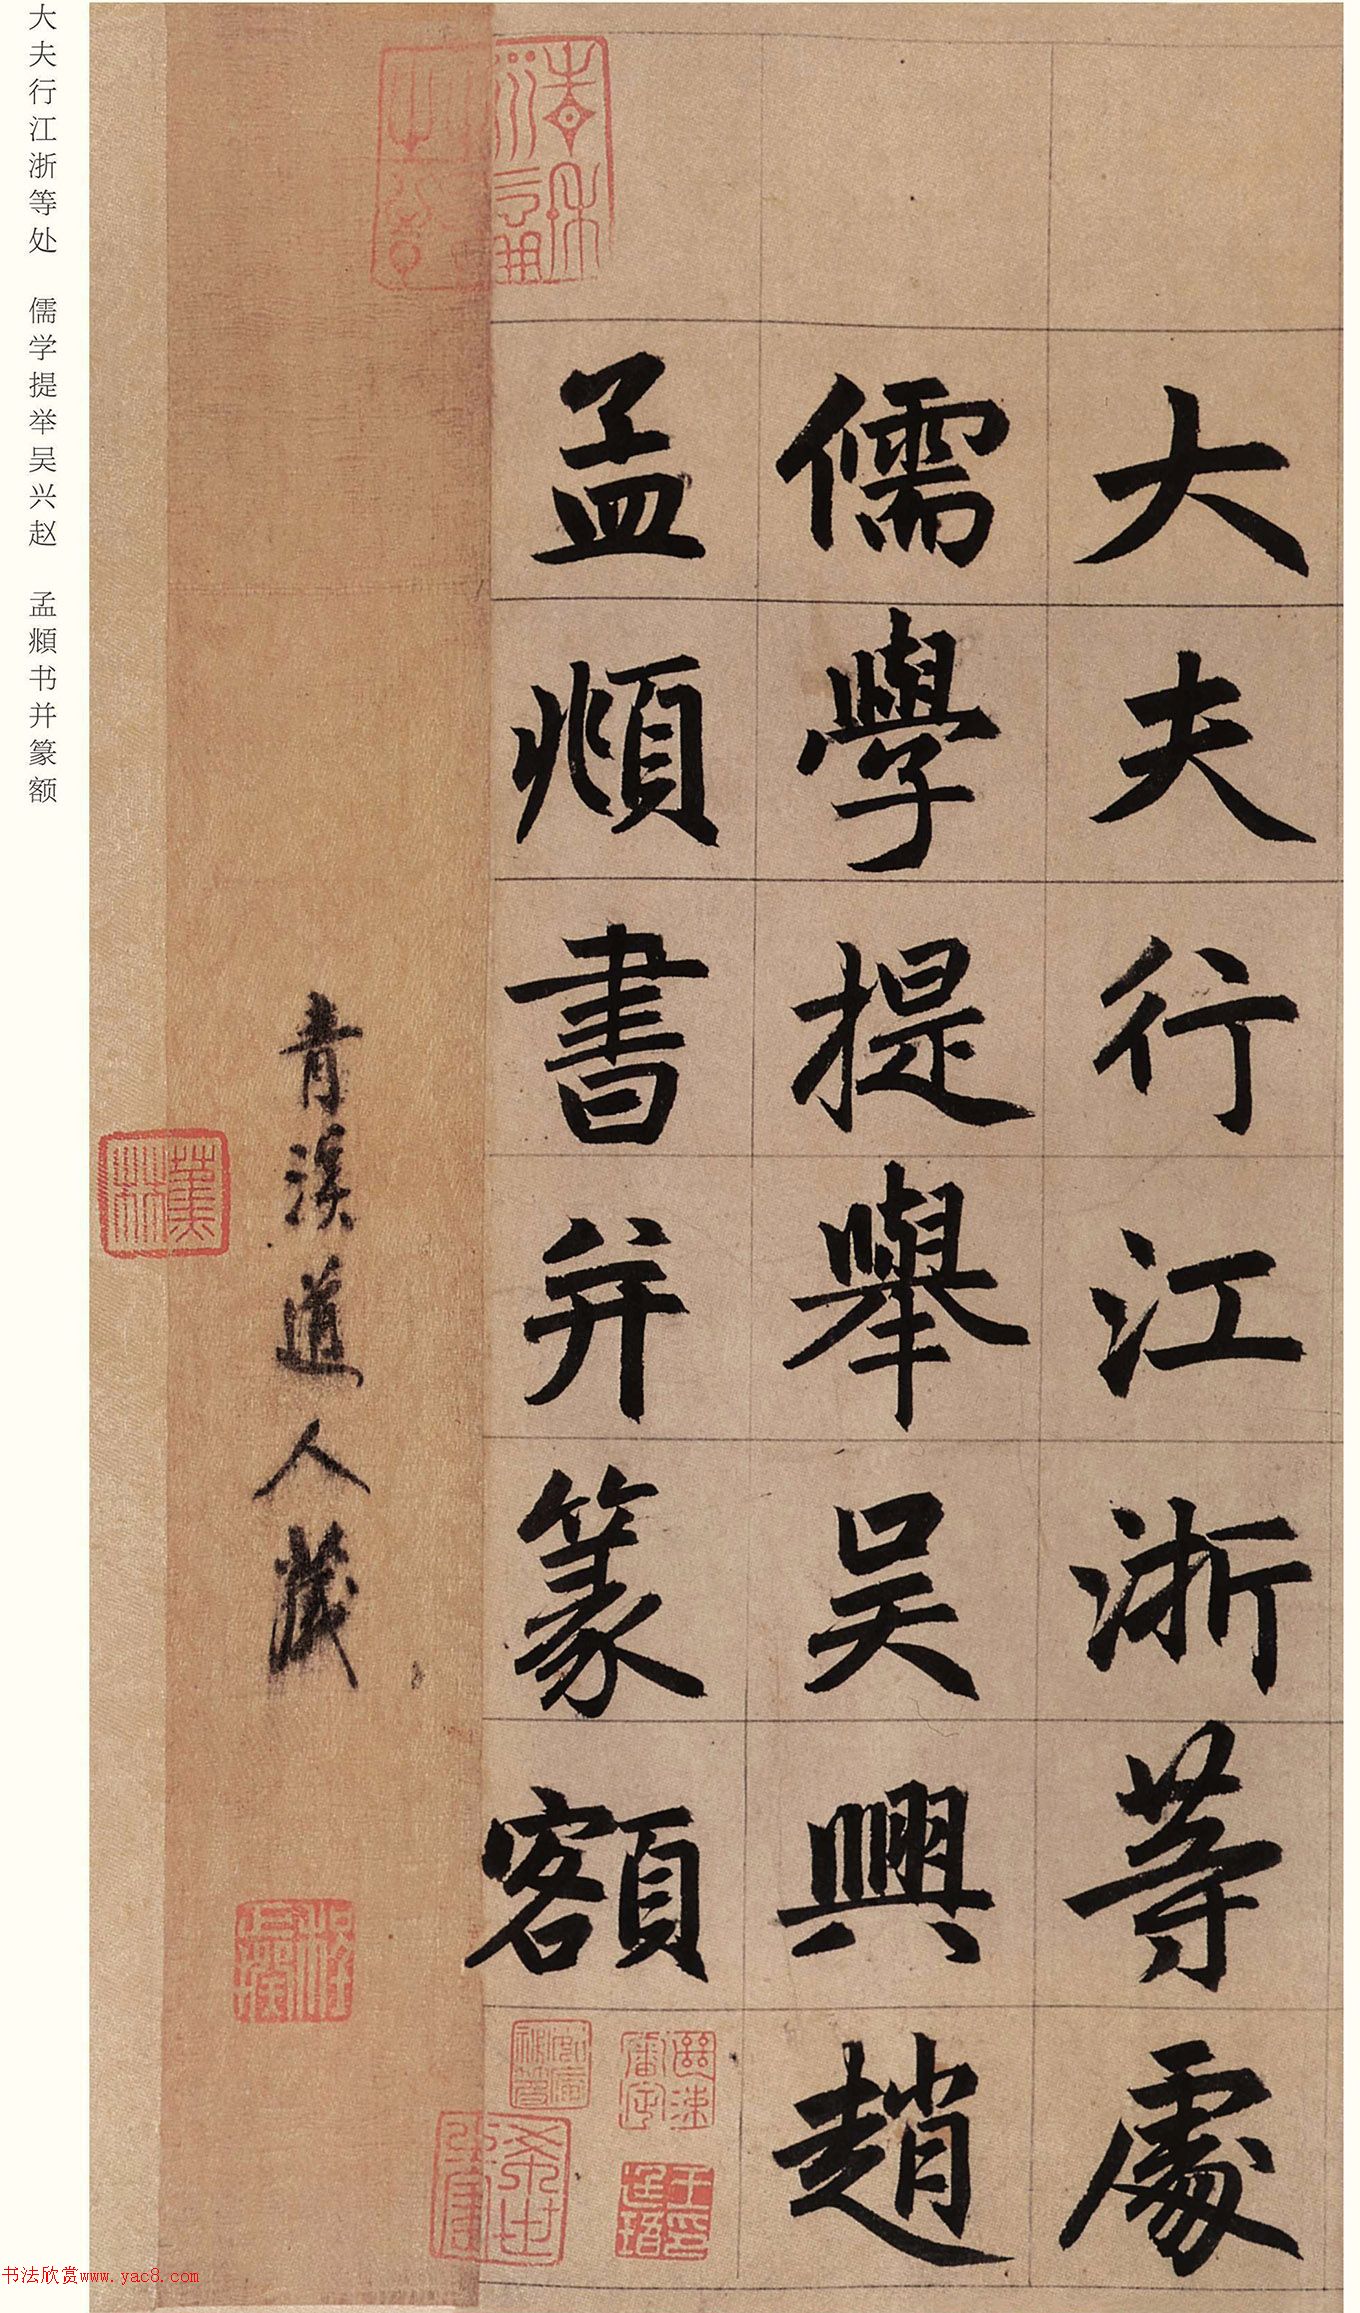 大夫行江浙等處
儒學提舉吳興趙
孟頫書并篆額
青溪道人藏
大夫行江浙等处　儒学提举吴兴赵　孟頫书并篆额
书法欣赏www.yac8.com